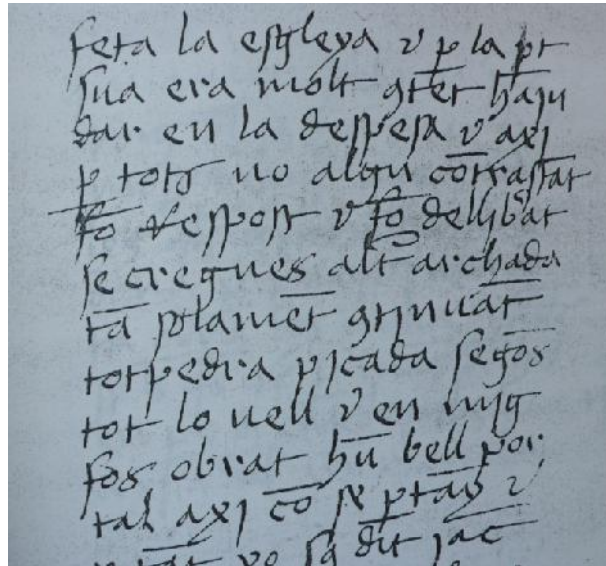 feta la esgleya e p la pt
sua era molt cõtẽt hi aju
dar en la despesa e axi
p tots no algu cõtrastãt
fõ respost e fõ dellibat
se cregues alt archada
tã solamẽt cõtinuãt
tot pedra picada segõs
tot lo vell e en mig
fos obrat hũ bell por
tal axi cõ se ptãy e
dit jac